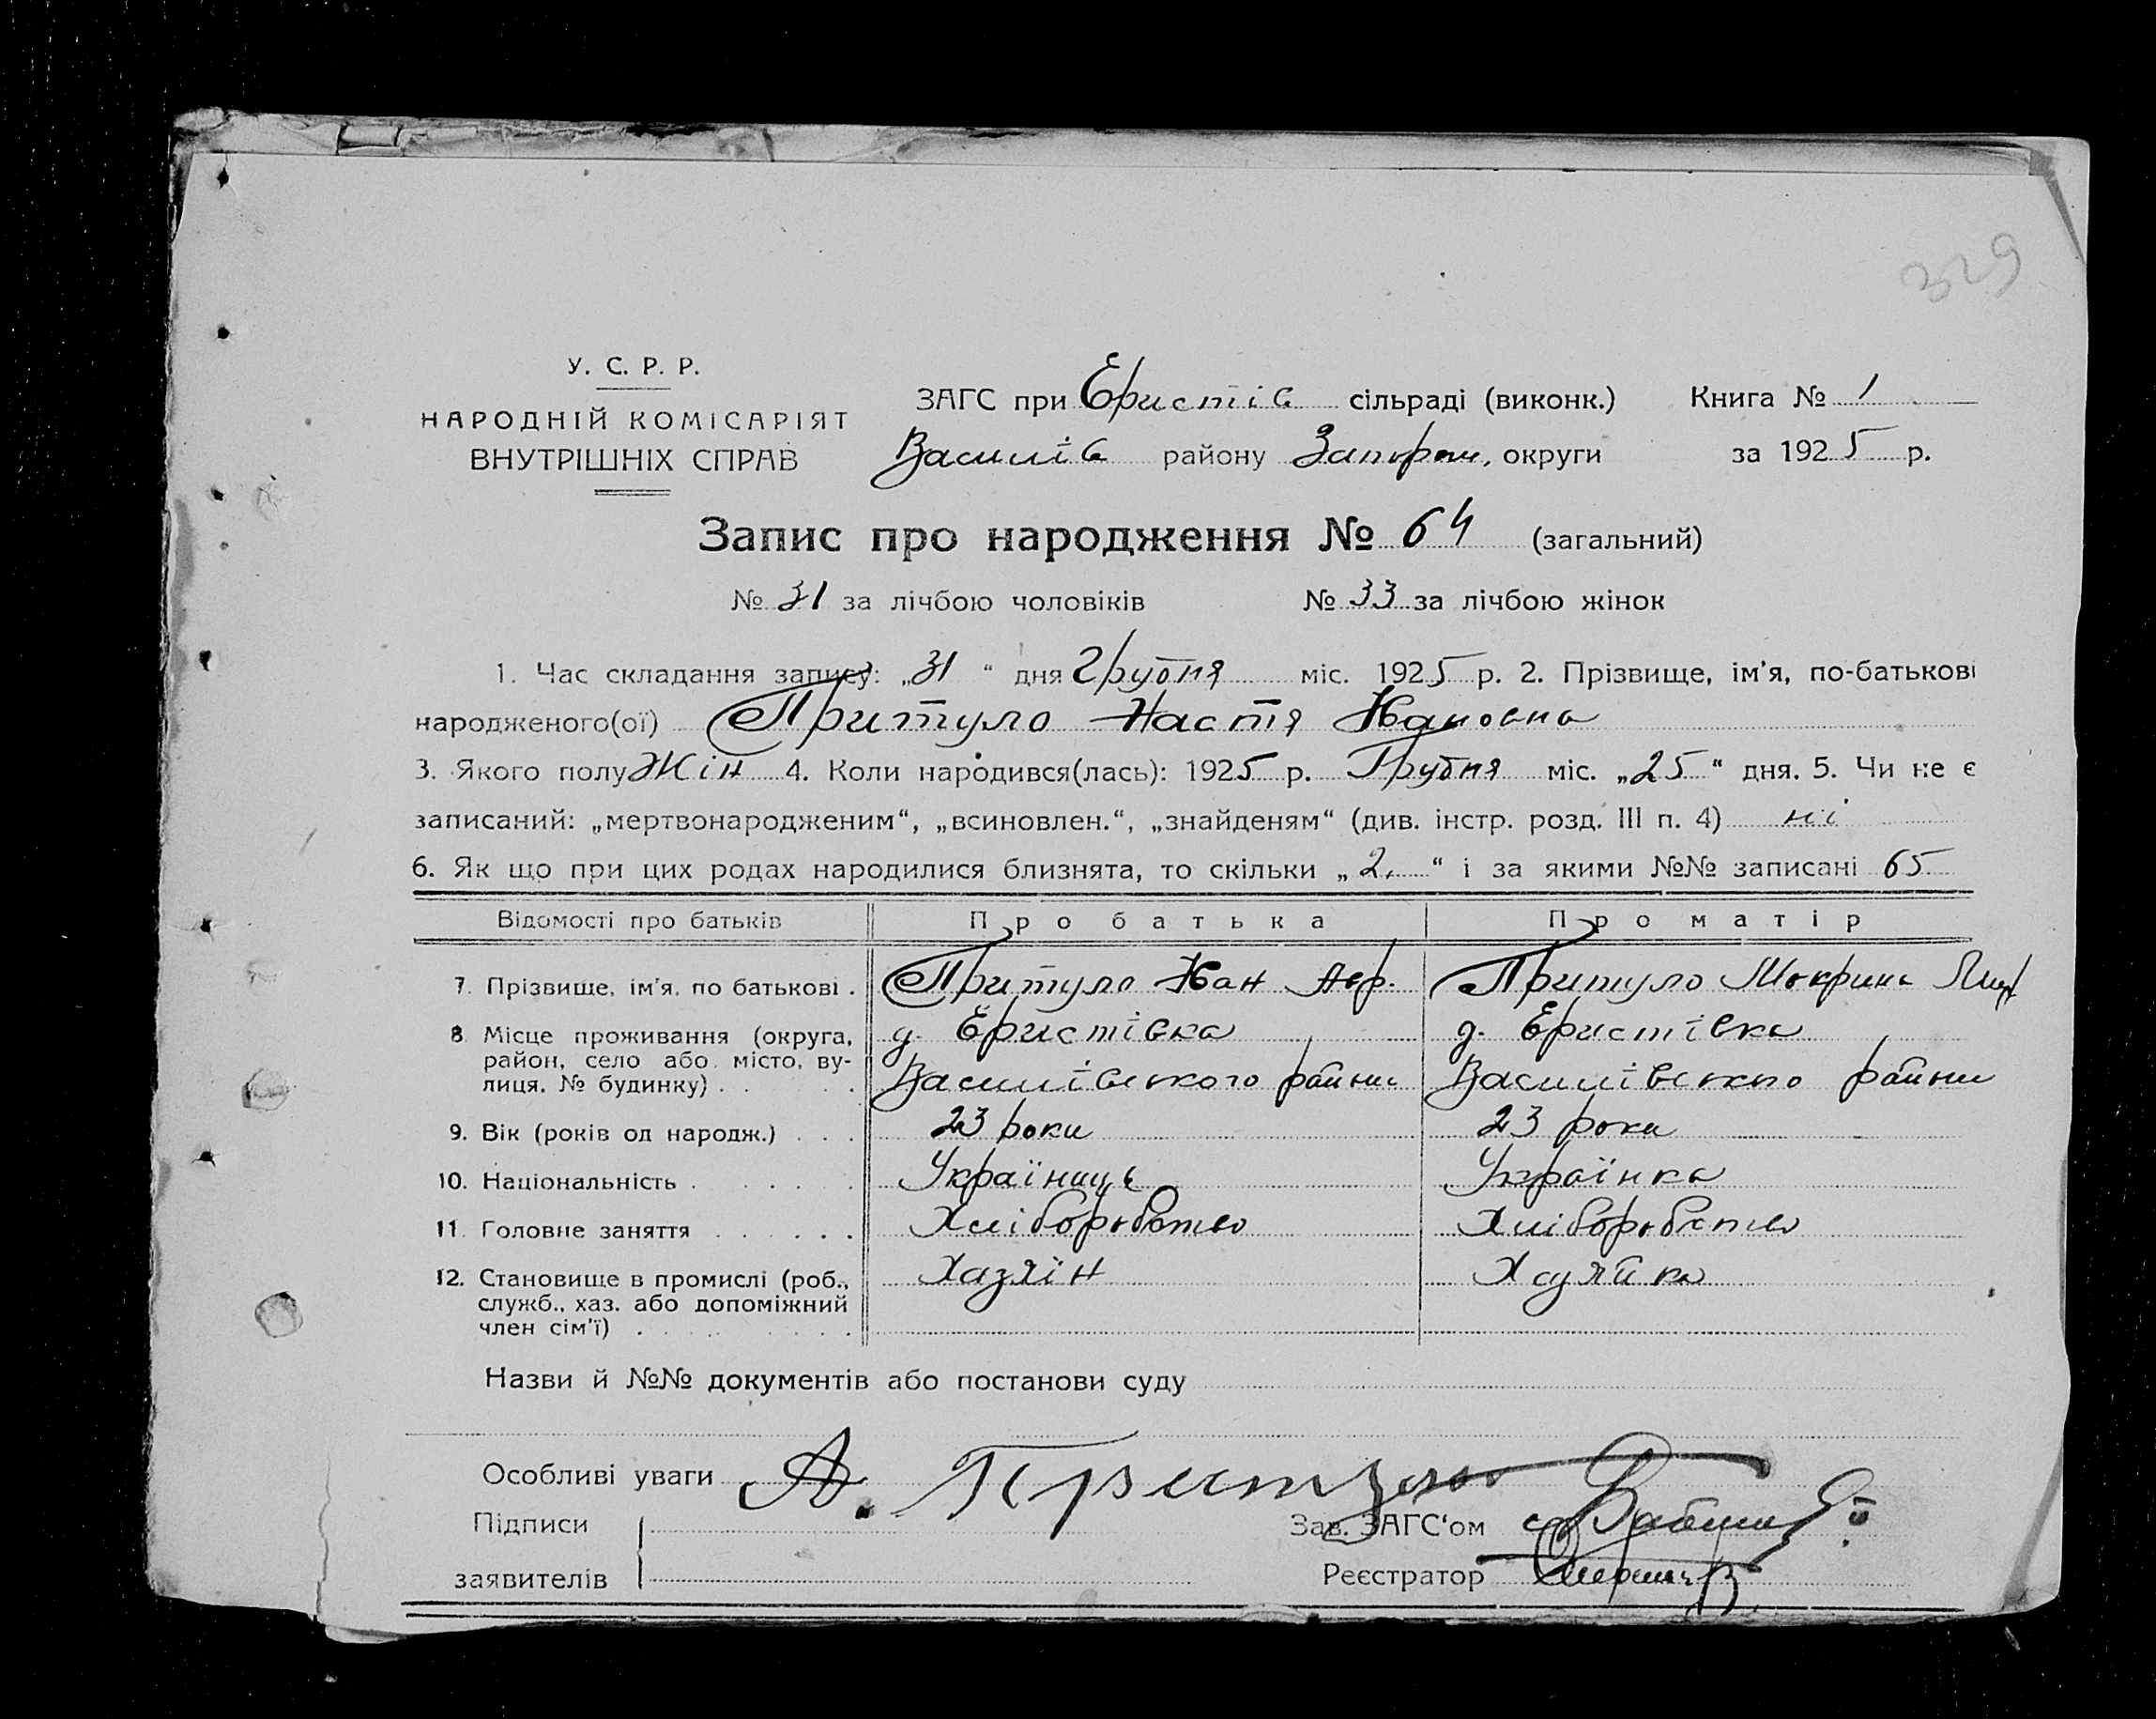 329
У. С. Р. Р.
НАРОДНІЙ КОМІСАРІЯТ
ВНУТРІШНІХ СПРАВ
ЗАГС при Еристів сільраді (виконк.) Книга № 1
Василів району Запорож. округи за 1925 р.
Запис про народження № 64 (загальний)
№ 31 за лічбою чоловіків № 33 за лічбою жінок
1. Час складання запису: „31“ дня Грудня міс. 1925 р. 2. Прізвище, ім'я, по-батькові
народженого(ої) Притуло Настя Івановна
3. Якого полу Жін 4. Коли народився(лась): 1925 р. Грудня міс. „25“ дня. 5. Чи не є
записаний: „мертвонародженим“, „всиновлен.“, „знайденям“ (див. інстр. розд. III п. 4) ні
6. Як що при цих родах народилися близнята, то скільки „2.“ і за якими №№ записані 65
Відомості про батьків Про батька Про матір
7. Прізвище, ім'я, по батькові . Притуло Іван Притуло Мокрина
8. Місце проживання (округа, д. Еристівка д. Еристівка
район, село або місто, ву-
лиця, № будинку) . . . Василівського району Василівського району
9. Вік (років од народж.) . . . 23 роки 23 роки
10. Національність . . . . . Україниць Українка
11. Головне заняття . . . . . . Хліборобство Хліборобство
12. Становище в промислі (роб., Хазяїн Хазяйка
служб., хаз. або допоміжний
член сім'ї) . . . . . . . .
Назви й №№ документів або постанови суду
Особливі уваги А. Притуло
Підписи Зав. ЗАГС'ом
заявителів Реєстратор